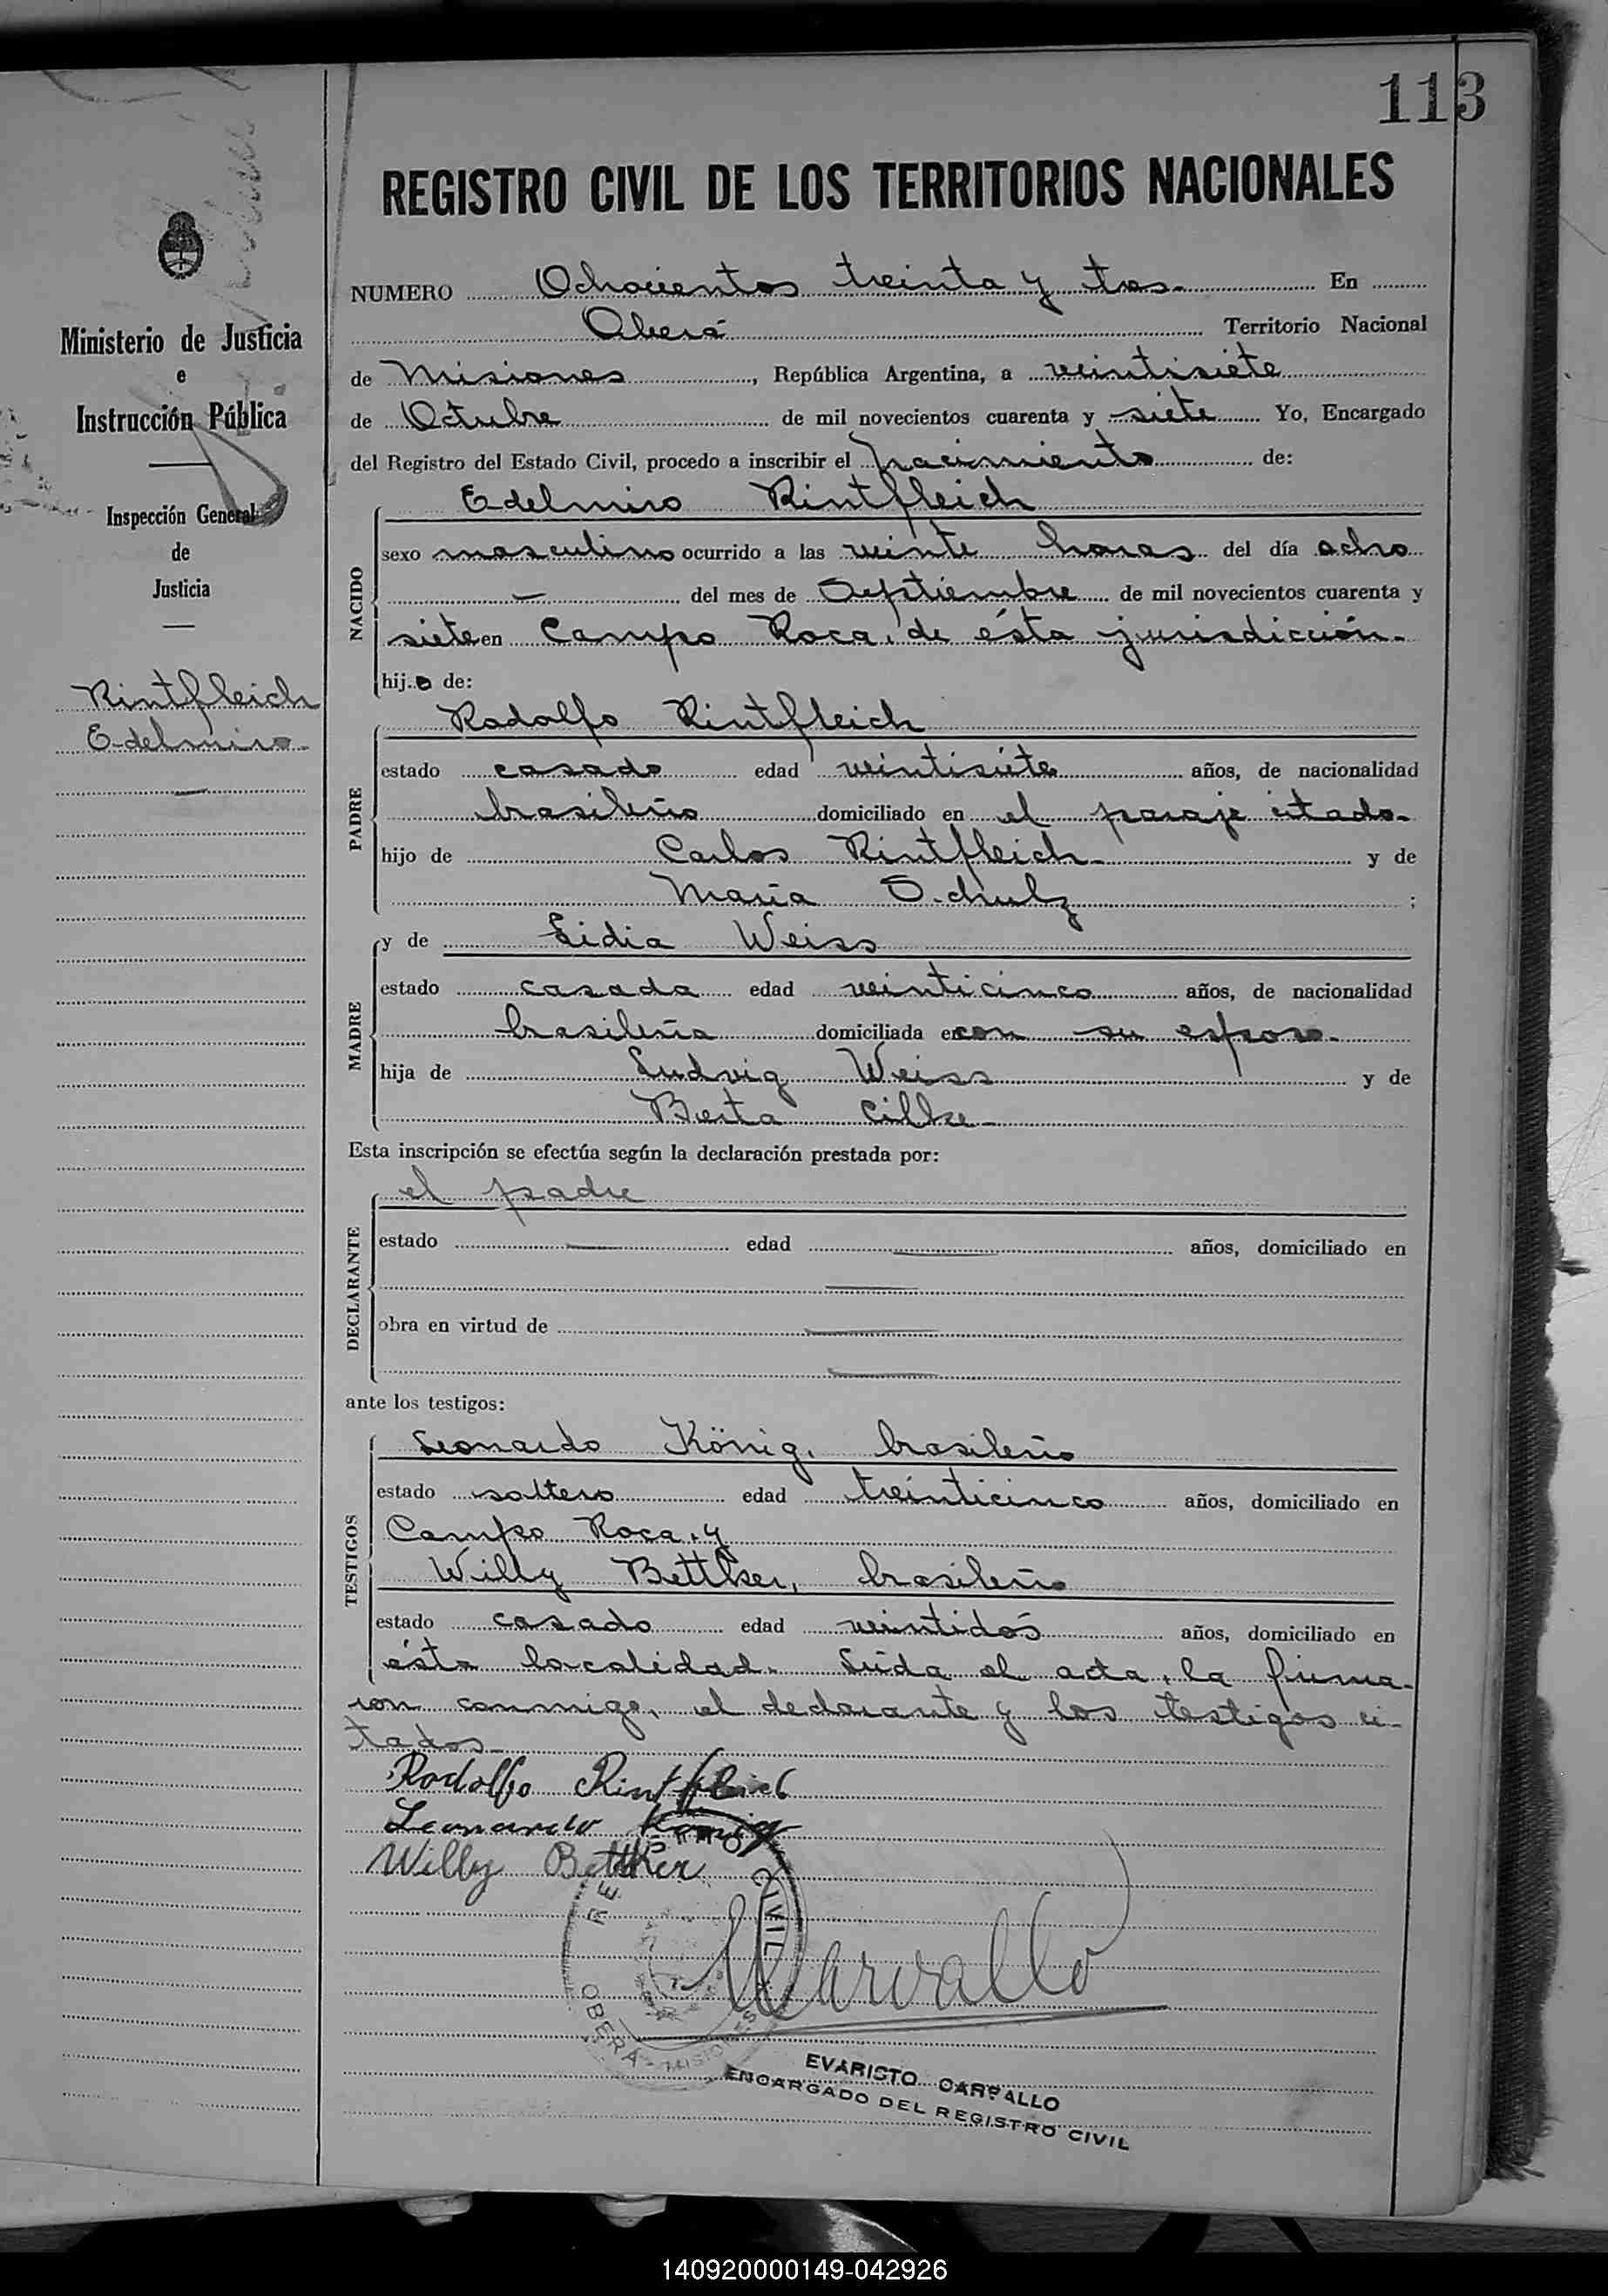 113
REGISTRO CIVIL DE LOS TERRITORIOS NACIONALES
NUMERO Ochocientos treinta y tres.- En
Oberá Territorio Nacional
de Misiones, República Argentina, a veintisiete
de Octubre de mil novecientos cuarenta y siete Yo, Encargado
del Registro del Estado Civil, procedo a inscribir el nacimiento de:
NACIDO
Edelmiro Rintfleich
sexo masculino ocurrido a las veinte horas del día ocho
— del mes de Septiembre de mil novecientos cuarenta y
siete en Campo Roca, de ésta jurisdicción.-
hijo de:
PADRE
Rodolfo Rintfleich
estado casado edad veintisiete años, de nacionalidad
brasileño domiciliado en el paraje citado.-
hijo de Carlos Rintfleich.- y de
María Schulz ;
MADRE
y de Lidia Weiss
estado casada edad veinticinco años, de nacionalidad
brasileña domiciliada en con su esposo.-
hija de Ludvig Weiss y de
Berta Cilke.-
Esta inscripción se efectúa según la declaración prestada por:
DECLARANTE
el padre
estado — edad — años, domiciliado en
—
obra en virtud de —
—
ante los testigos:
TESTIGOS
Leonardo König, brasileño
estado soltero edad treinticinco años, domiciliado en
Campo Roca, y
Willy Bettker, brasileño
estado casado edad veintidós años, domiciliado en
ésta localidad. Leída el acta, la firma-
ron conmigo, el declarante y los testigos ci-
tados.-
Rodolfo Rintfleich
Leonardo König
Willy Bettker
CIVIL
OBERÁ - MISIONES
Carvallo
EVARISTO CARVALLO
ENCARGADO DEL REGISTRO CIVIL
Ministerio de Justicia
e
Instrucción Pública
Inspección General
de
Justicia
Rintfleich
Edelmiro.-
—
140920000149-042926